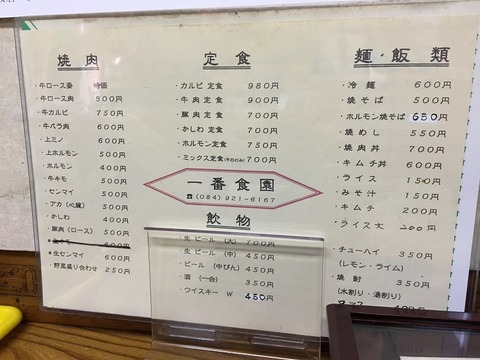 焼肉
・牛ロース姿 時価
・牛ロース肉 800円
・牛カルビ 750円
・牛バラ肉 600円
・上ミノ 600円
・上ホルモン 500円
・ホルモン 400円
・牛キモ 500円
・センマイ 500円
・アカ(心臓) 500円
・かしわ 400円
・豚肉(ロース) 500円
・生キモ 600円
・生センマイ 600円
・野菜盛り合わせ 250円
定食
・カルビ 定食 980円
・牛肉 定食 900円
・豚肉 定食 700円
・かしわ 定食 700円
・ホルモン定食 750円
・ミックス定食(平日のみ) 700円
一番食園
☎(084)921-6167
飲物
・生ビール(大) 700円
・生ビール(中) 450円
・ビール(中びん) 450円
・酒(一合) 350円
・ウイスキー W 450円
麺・飯類
・冷麺 600円
・焼そば 500円
・ホルモン焼そば 650円
・焼めし 550円
・焼肉丼 700円
・キムチ丼 600円
・ライス 150円
・みそ汁 150円
・キムチ 200円
・ライス大 200円
・チューハイ 350円
(レモン・ライム)
・焼酎 350円
(水割り・湯割り)